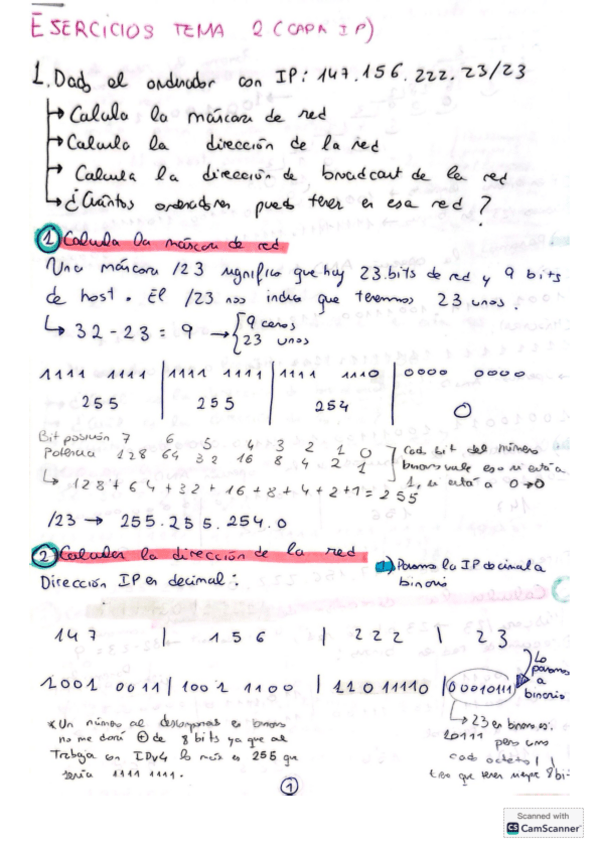 EJERCICIOS TEMA 2 (CAPA IP)
1. Dado el ordenador con IP: 147.156.222.23/23
↳ Calcula la máscara de red
↳ Calcula la dirección de la red
↳ Calcula la dirección de broadcast de la red
↳ ¿Cuántos ordenadores puedo tener en esa red?
1 Calcula la máscara de red
Una máscara /23 significa que hay 23 bits de red y 9 bits
de host. El /23 nos indica que tenemos 23 unos.
↳ 32-23 = 9 → { 9 ceros
23 unos
1111 1111 | 1111 1111 | 1111 1110 | 0000 0000
255 | 255 | 254 | 0
Bit posición 7 6 5 4 3 2 1 0
Potencia 128 64 32 16 8 4 2 1
Cada bit del número
binario vale eso si está a
1, si está a 0→0
↳ 128+64+32+16+8+4+2+1 = 255
/23 → 255.255.254.0
2 Calcular la dirección de la red
Dirección IP en decimal:
Pasamos la IP decimal a
binario
147 | 156 | 222 | 23
Lo
pasamos
a
binario
1001 0011 | 1001 1100 | 11011110 | 00010111
↳ 23 en binario es:
10111 pero como
cada octeto
tiene que tener 8 bi-
*Un número al descomponer en binario
no me dará ⊕ de 8 bits ya que al
Trabajar con IDv4 lo más es 255 que
sería 1111 1111.
1
Scanned with
CS CamScanner